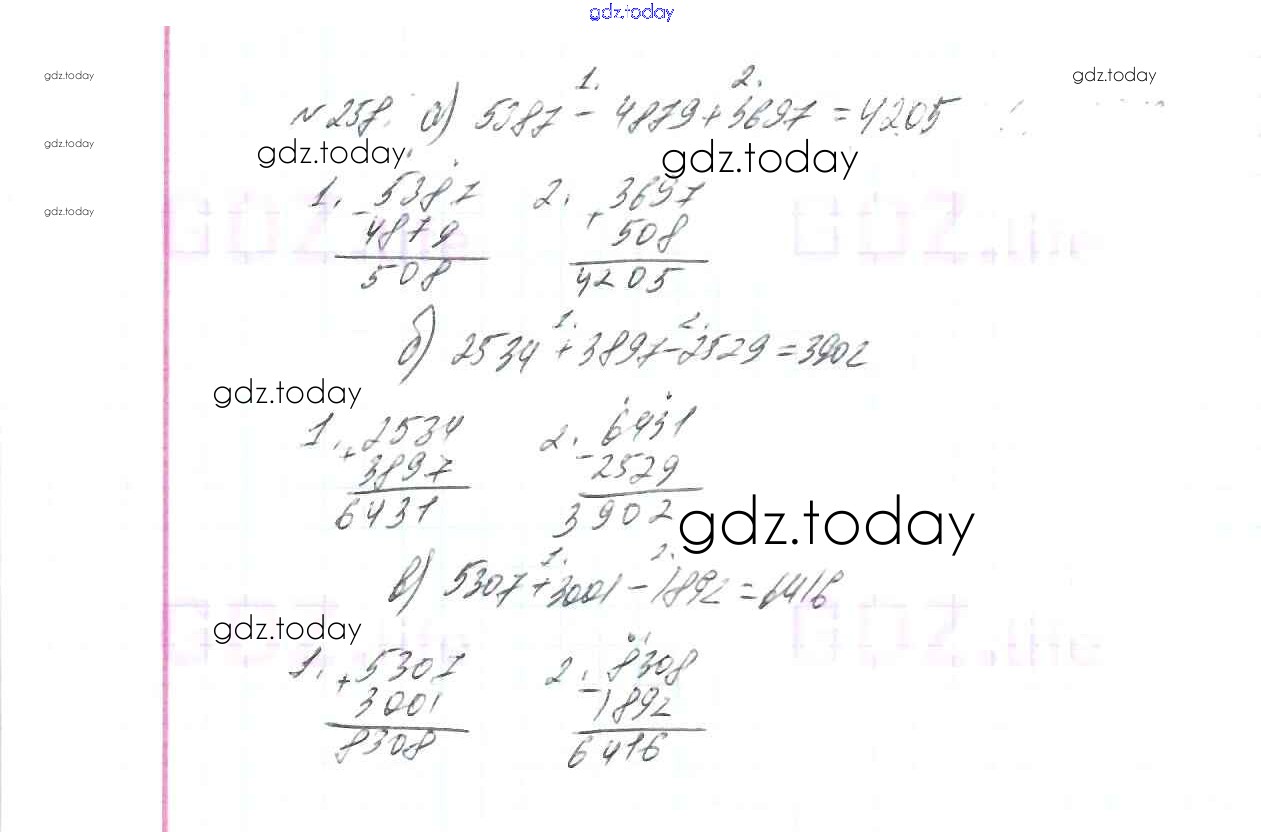 gdz.today
gdz.today
gdz.today
1. 2.
№ 258. а) 5387 - 4879 + 3697 = 4205
gdz.today
gdz.today
gdz.today
gdz.today
1. 5387 2. 3697
- +
4879 508
508 4205
1. 2.
б) 2534 + 3897 - 2529 = 3902
gdz.today
1. 2534 2. 6431
+ -
3897 2529
6431 3902
gdz.today
1. 2.
в) 5307 + 3001 - 1892 = 6416
gdz.today
1. + 5307 2. 8308
-
3001 1892
8308 6416